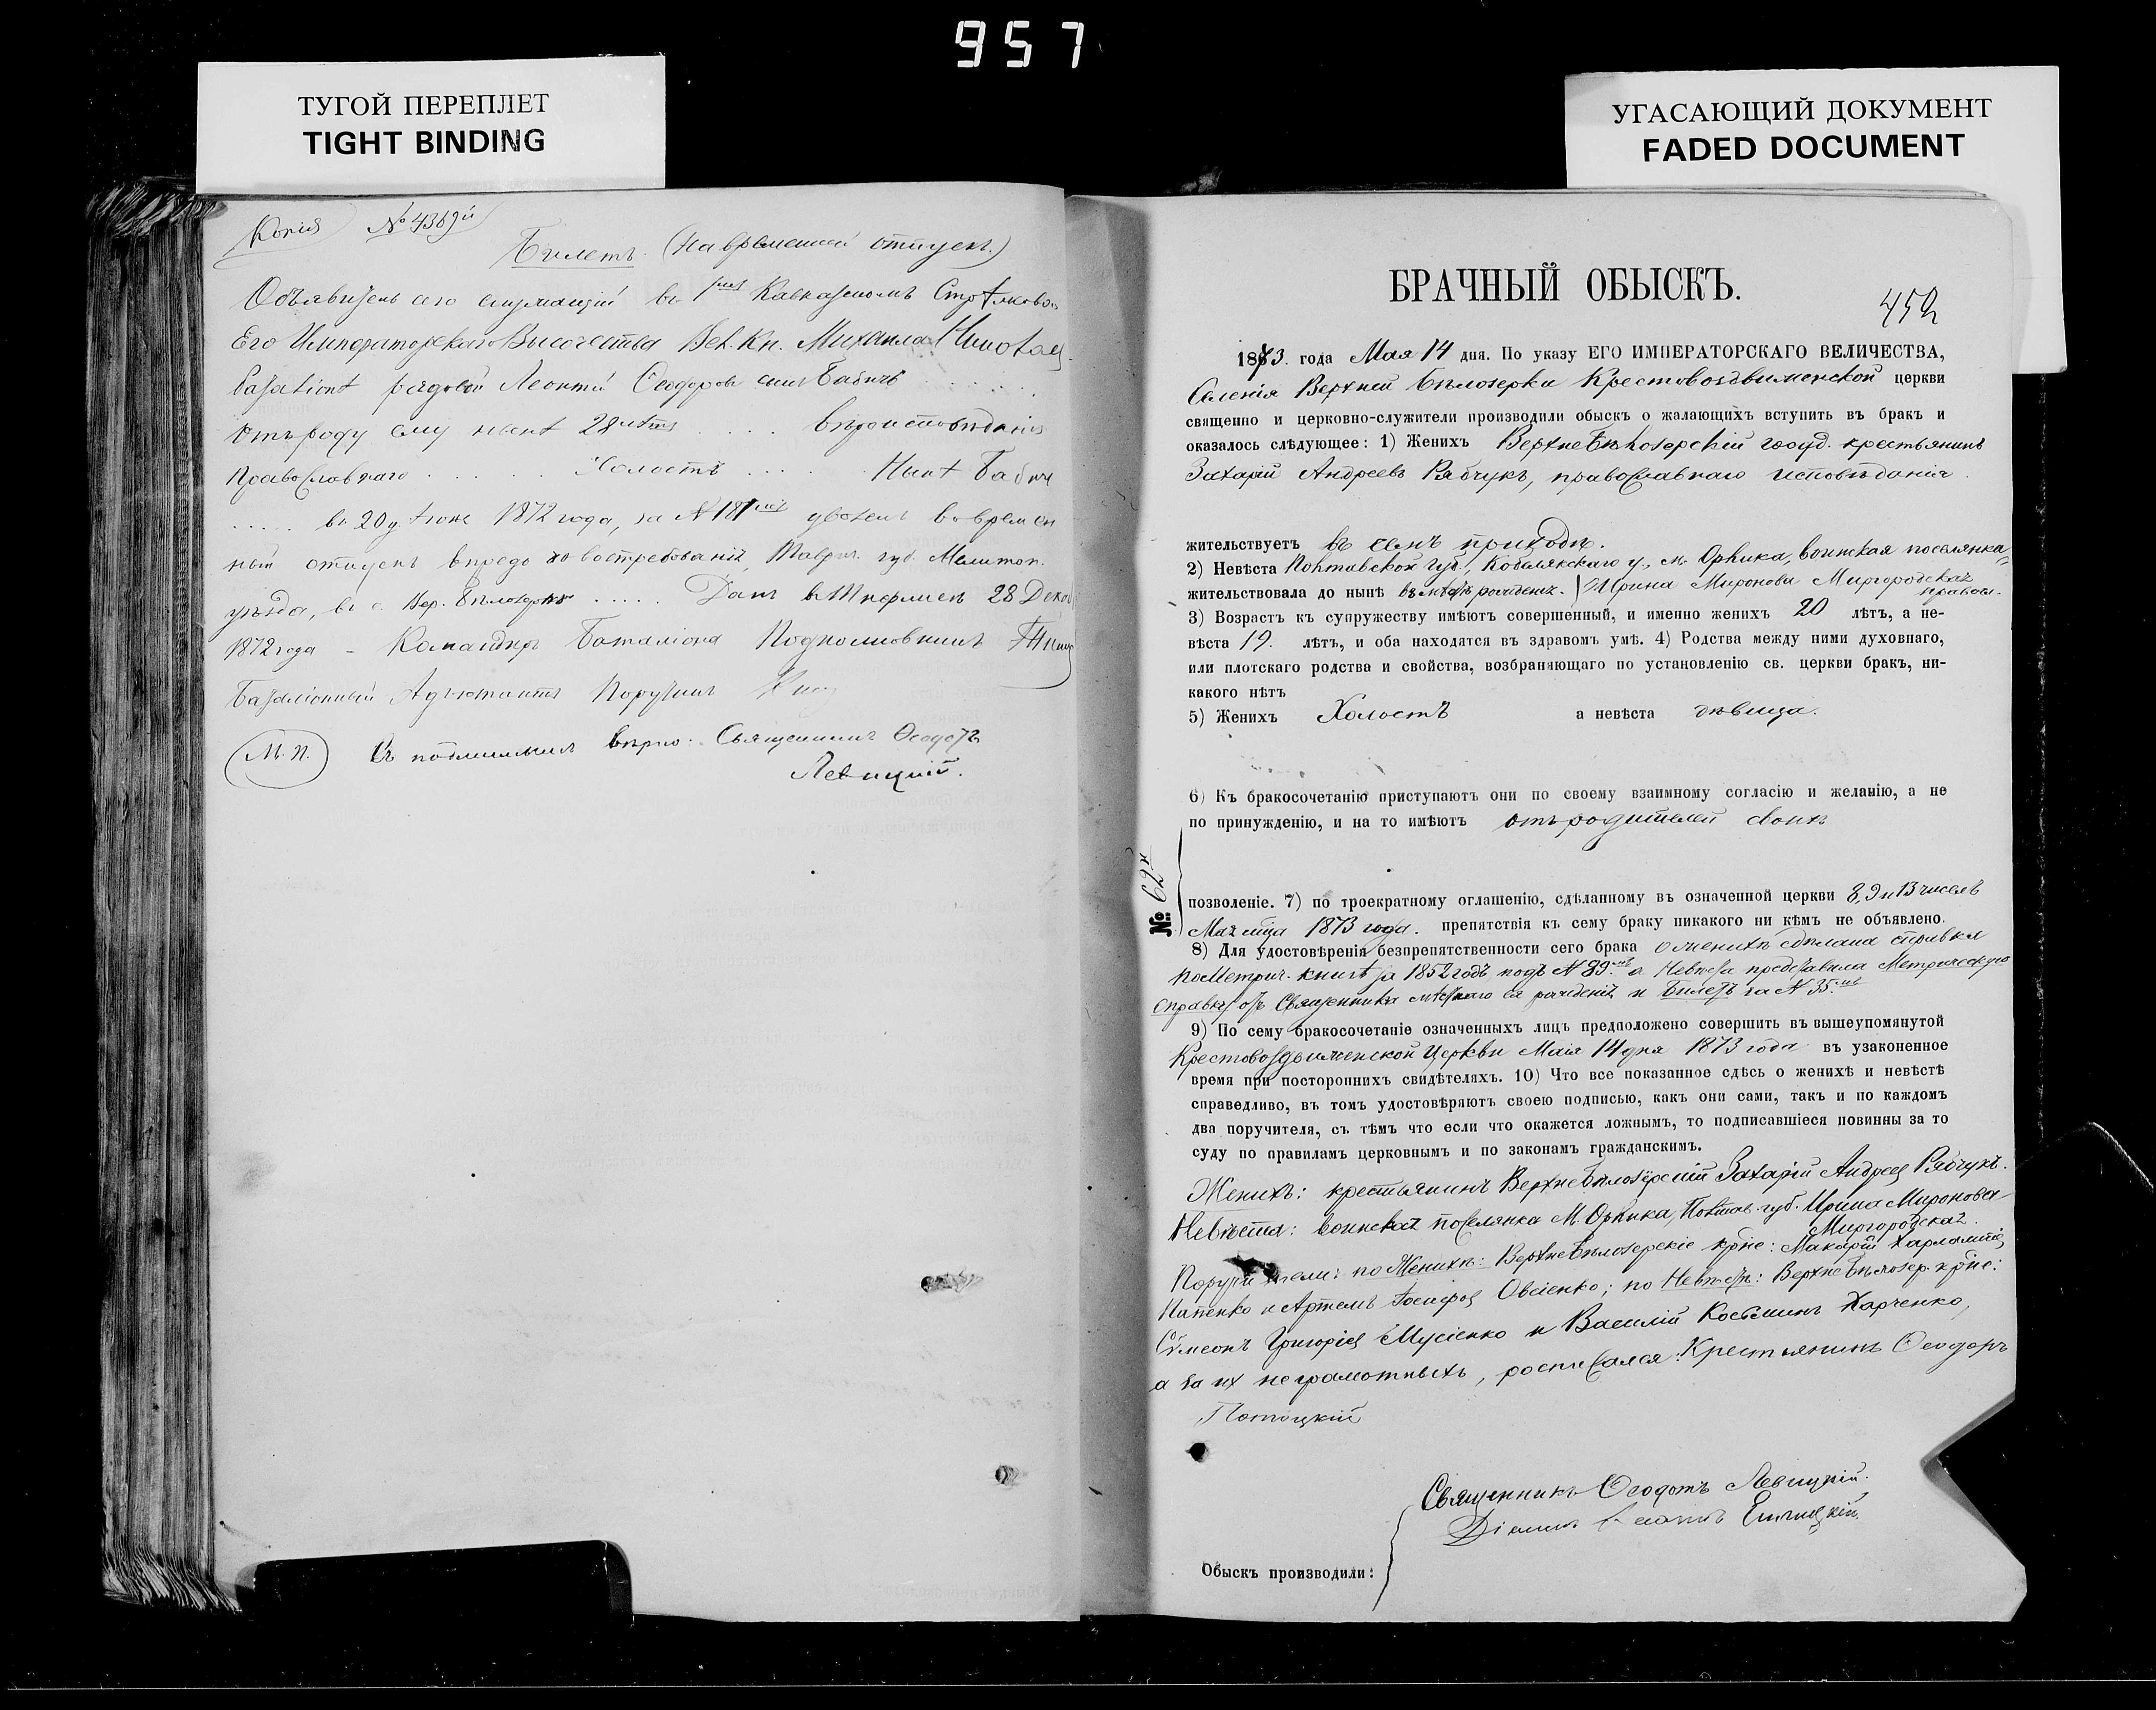 957
ТУГОЙ ПЕРЕПЛЕТ
TIGHT BINDING
УГАСАЮЩИЙ ДОКУМЕНТ
FADED DOCUMENT
Копія № 4369й
Билетъ. (на временный отпускъ.)
Объявитель сего служащій въ 1мъ Кавказскомъ Стрѣлковом
Его Императорскаго Высочества Вел. Кн. Михаила Николаев.
баталіонѣ рядовой Леонтій Ѳеодоровъ сынъ Бабичъ . . . . . .
Отъ роду ему нынѣ 28 лѣтъ . . . . вѣроисповѣданія
Православнаго . . . . . Холостъ . . . . . Нынѣ Бабич
. . . . . въ 20 д. Іюня 1872 года, за № 181мъ уволенъ во времен
ный отпускъ впредь до востребованія, Таврич. губ. Мелитоп.
уѣзда, въ с. Вер. Бѣлозерку . . . . . Данъ в 28 Декаб
1872 года – Командиръ Баталіона Подполковникъ
Баталіонный Адъютантъ Поручикъ
М. П. Съ подлиннымъ вѣрно. Священникъ Ѳеодотъ
Левицкій.
БРАЧНЫЙ ОБЫСКЪ.
452
1873. года Мая 14 дня. По указу ЕГО ИМПЕРАТОРСКАГО ВЕЛИЧЕСТВА,
Селенія Верхней Бѣлозерки Крестовоздвиженской церкви
священно и церковно-служители производили обыскъ о жалающихъ вступить въ бракъ и
оказалось слѣдующее: 1) Женихъ ВерхнеБѣлозерскій госуд. крестьянинъ
Захарій Андреевъ Рябчукъ, православнаго исповѣданія.
жительствуетъ въ семъ приходѣ.
2) Невѣста Полтавской губ., Кобелякскаго у., м. Орлика, воинская поселянка
жительствовала до нынѣ въ мѣстѣ рожденія. | Ирина Миронова Миргородская
правосл.
3) Возрастъ къ супружеству имѣютъ совершенный, и именно женихъ 20 лѣтъ, а не-
вѣста 19. лѣтъ, и оба находятся въ здравомъ умѣ. 4) Родства между ними духовнаго,
или плотскаго родства и свойства, возбраняющаго по установленію св. церкви бракъ, ни-
какого нѣтъ
5) Женихъ Холостъ а невѣста дѣвица.
6) Къ бракосочетанію приступаютъ они по своему взаимному согласію и желанію, а не
по принужденію, и на то имѣютъ отъ родителей своих
№ 62й
позволеніе. 7) по троекратному оглашенію, сдѣланному въ означенной церкви 8, 9 и 13 числѣ
Мая мца 1873 года. препятствія къ сему браку никакого ни кѣмъ не объявлено.
8) Для удостовѣренія безпрепятственности сего брака о женихѣ сдѣлана справка
по Метрич. книгѣ за 1852 годъ подъ № 89мъ а Невѣста представила Метрическую
справку отъ Священника мѣстнаго ея рожденія и Билетъ за № 35мъ
9) По сему бракосочетаніе означенныхъ лицъ предположено совершить въ вышеупомянутой
Крестовоздвиженской Церкви Маія 14 дня 1873 года въ узаконенное
время при постороннихъ свидѣтеляхъ. 10) Что все показанное сдѣсь о женихѣ и невѣстѣ
справедливо, въ томъ удостовѣряютъ своею подписью, какъ они сами, такъ и по каждомъ
два поручителя, съ тѣмъ что если что окажется ложнымъ, то подписавшіеся повинны за то
суду по правиламъ церковнымъ и по законамъ гражданскимъ.
Женихъ: крестьянинъ ВерхнеБѣлозерскій Захарій Андреев Рябчукъ.
Невѣста: воинская поселянка М. Орлика, Полтав. губ. Ирина Миронова
Миргородская.
Поручители: по Женихѣ: ВерхнеБѣлозерскіе крне: Макарій Харлампіев
и Артемъ Іосифов Овсіенко; по Невѣстѣ: ВерхнеБѣлозер. крне:
Сѵмеонъ Григоріев Мусіенко и Василій Косьминъ Харченко,
а за их неграмотныхъ, росписался: Крестьянинъ Ѳеодоръ
Потоцкій
Священникъ Ѳеодотъ Левицкій.
Обыскъ производили: